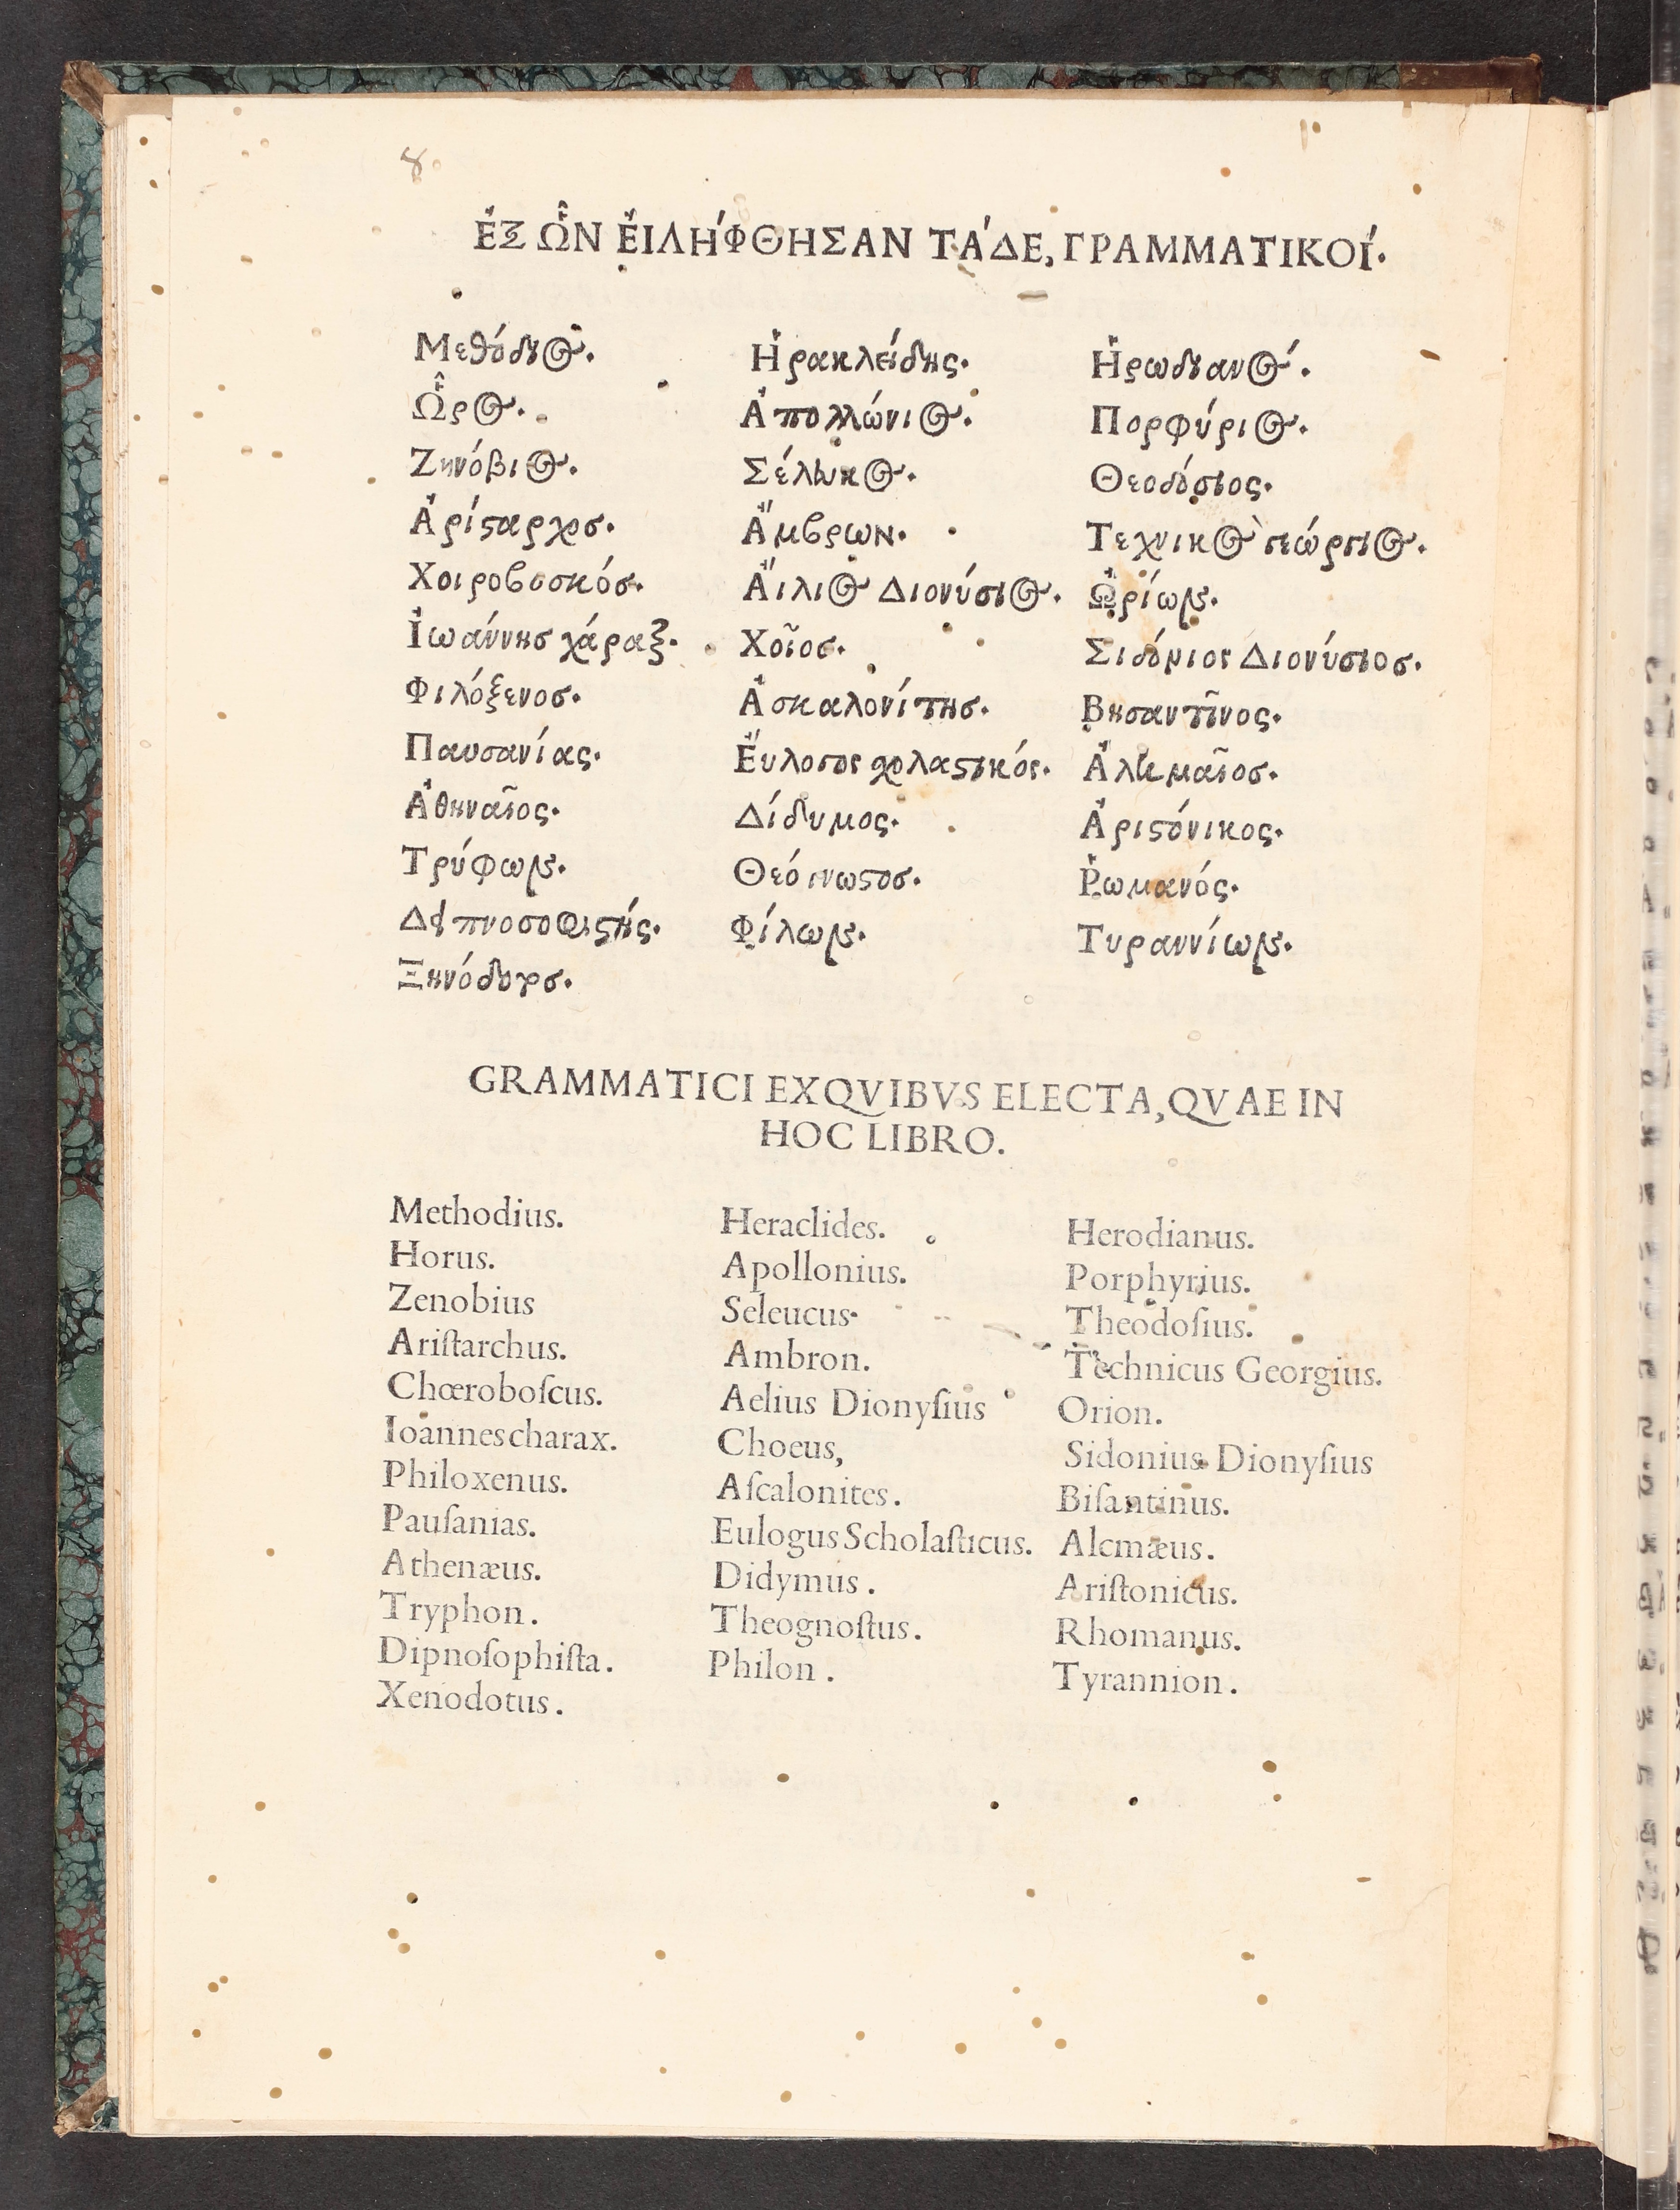 8
ἘΞ ὯΝ ἘΙΛΗ´ΦΘΗΣΑΝ ΤΑ´ΔΕ, ΓΡΑΜΜΑΤΙΚΟΊ.
Μεθόδιος.
Ὧρος.
Ζηνόβιος.
Ἀρίσταρχοσ.
Χοιροβοσκόσ.
Ἰωάννησ χάραξ.
Φιλόξενοσ.
Παυσανίας.
Ἀθηναῖος.
Τρύφων.
Δειπνοσοφιστής.
Ξηνόδοτοσ.
Ἡρακλείδης.
Ἀπολλώνιος.
Σέλευκος.
Ἄμβρων.
Ἄιλιος Διονύσιος.
Χοῖος.
Ἀσκαλονίτησ.
Ἔυλογος σχολαστικός.
Δίδυμος.
Θεόγνωστοσ.
Φίλων.
Ἡρωδιανός.
Πορφύριος.
Θεοδόσιος.
Τεχνικὸς γεώργιος.
Ὠρίων.
Σιδόνιος Διονύσιοσ.
Βησαντῖνος.
Ἀλκμαῖοσ.
Ἀριστόνικος.
Ῥωμανός.
Τυραννίων.
GRAMMATICI EXQVIBVS ELECTA, QVAE IN
HOC LIBRO.
Methodius.
Horus.
Zenobius
Ariſtarchus.
Chœroboſcus.
Ioannescharax.
Philoxenus.
Pauſanias.
Athenæus.
Tryphon.
Dipnoſophiſta.
Xenodotus.
Heraclides.
Apollonius.
Seleucus.
Ambron.
Aelius Dionyſius
Choeus,
Aſcalonites.
Eulogus Scholaſticus.
Didymus.
Theognoſtus.
Philon.
Herodianus.
Porphyrius.
Theodoſius.
Technicus Georgius.
Orion.
Sidonius Dionyſius
Biſantinus.
Alcmæus.
Ariſtonicus.
Rhomanus.
Tyrannion.